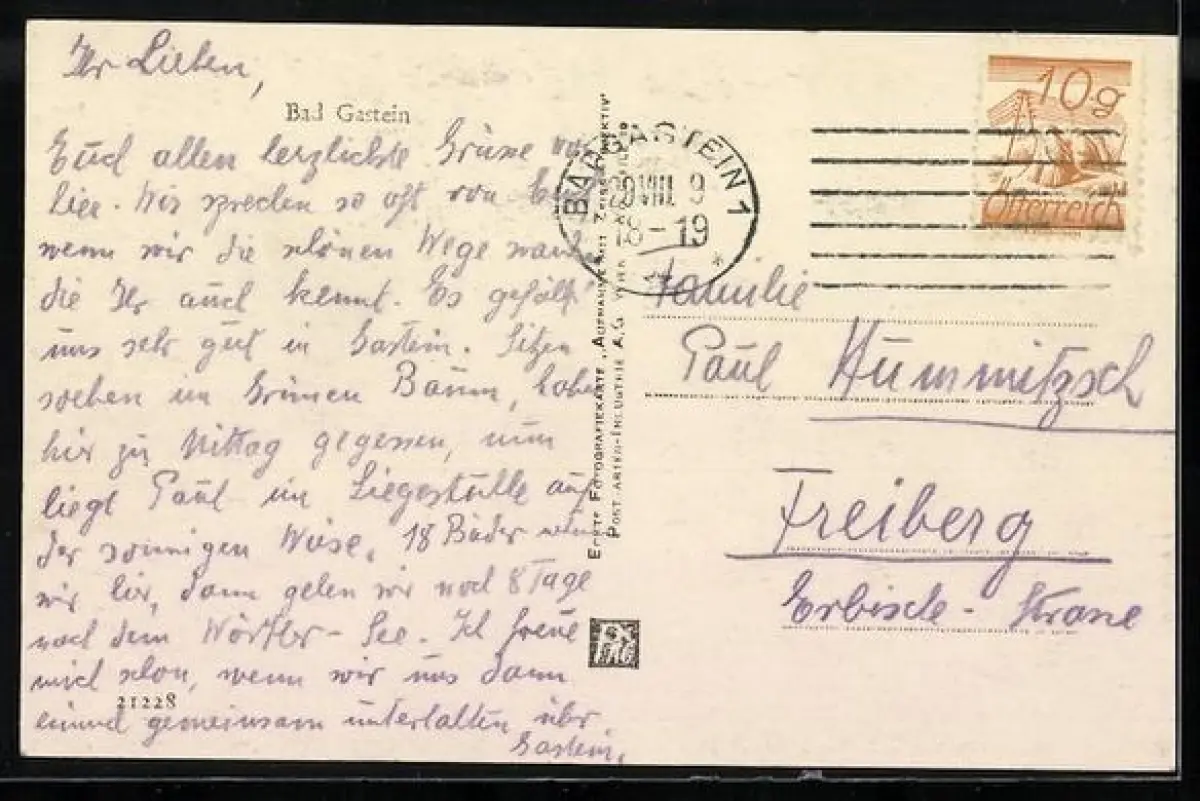 Ihr Lieben,
Bad Gastein
Euch allen herzlichste Grüsse von
hier. Wir sprechen so oft von
wenn wir die schönen Wege
die Ihr auch kennt. Es gefällt
uns sehr gut in Gastein. Sitzen
soeben im Grünen Baum, haben
hier zu Mittag gegessen, nun
liegt Paul im Liegestuhle auf
der sonnigen Wiese. 18 Bäder
wir hier, dann gehen wir noch 8 Tage
nach dem Wörther-See. Ich freue
mich schon, wenn wir uns dann
einmal gemeinsam unterhalten über
Gastein.
21228
ECHTE FOTOGRAFIEKARTE, AUFNAHME MIT ZEISS
POSTKARTEN-INDUSTRIE A.G. WIEN
BADGASTEIN 1
20 VIII 9
18-19
*
10g
Österreich
Familie
Paul Hummitzsch
Freiberg
Erbische-Strasse